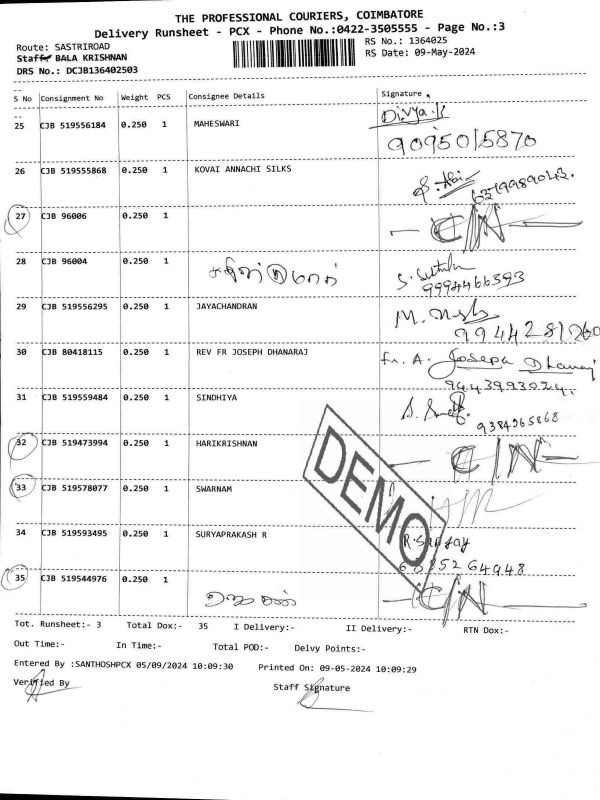 THE PROFESSIONAL COURIERS, COIMBATORE
Delivery Runsheet - PCX - Phone No.:0422-3505555 - Page No.:3
Route: SASTRIROAD
RS No.: 1364025
Staff BALA KRISHNAN
RS Date: 09-May-2024
DRS No.: DCJB136402503
S No Consignment No Weight PCS Consignee Details Signature
25 CJB 519556184 0.250 1 MAHESWARI Divya.K
9095015870
26 CJB 519555868 0.250 1 KOVAI ANNACHI SILKS
27 CJB 96006 0.250 1 C/N
28 CJB 96004 0.250 1
9994466393
29 CJB 519556295 0.250 1 JAYACHANDRAN
30 CJB 80418115 0.250 1 REV FR JOSEPH DHANARAJ Fr. A. Joseph Dhanaraj
9443993024.
31 CJB 519559484 0.250 1 SINDHIYA
9384965868
32 CJB 519473994 0.250 1 HARIKRISHNAN C/N
33 CJB 519578077 0.250 1 SWARNAM
34 CJB 519593495 0.250 1 SURYAPRAKASH R R.Sanjay
35 CJB 519544976 0.250 1 C/N
DEMO
Tot. Runsheet:- 3 Total Dox:- 35 I Delivery:- II Delivery:- RTN Dox:-
Out Time:- In Time:- Total POD:- Delvy Points:-
Entered By :SANTHOSHPCX 05/09/2024 10:09:30 Printed On: 09-05-2024 10:09:29
Verified By
Staff Signature